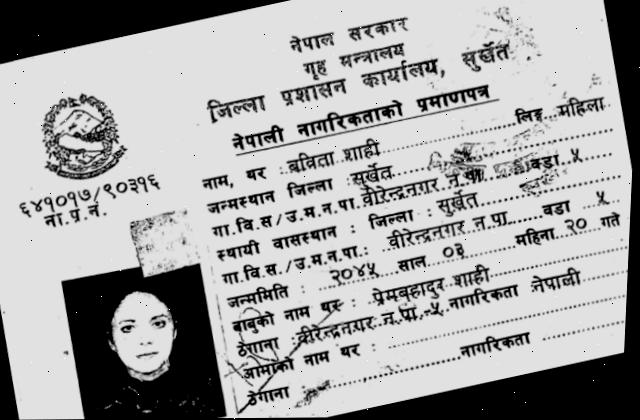 नेपाल सरकार
गृह मन्त्रालय
जिल्ला प्रशासन कार्यालय, सुर्खेत
नेपाली नागरिकताको प्रमाणपत्र
६४१०१७/९०३१६
ना.प्र.नं.
लिङ्ग महिला
नाम, थर : बविता शाही
जन्मस्थान जिल्ला : सुर्खेत
गा.वि.स/उ.म.न.पा. वीरेन्द्रनगर न.पा. वडा ५
स्थायी वासस्थान : जिल्ला : सुर्खेत
गा.वि.स./उ.म.न.पा.: वीरेन्द्रनगर न.पा वडा ५
जन्ममिति : २०४५ साल ०३ महिना २० गते
बाबुको नाम थर : प्रेमबहादुर शाही
ठेगाना : वीरेन्द्रनगर न.पा.-५ नागरिकता नेपाली
आमाको नाम थर :
ठेगाना : नागरिकता